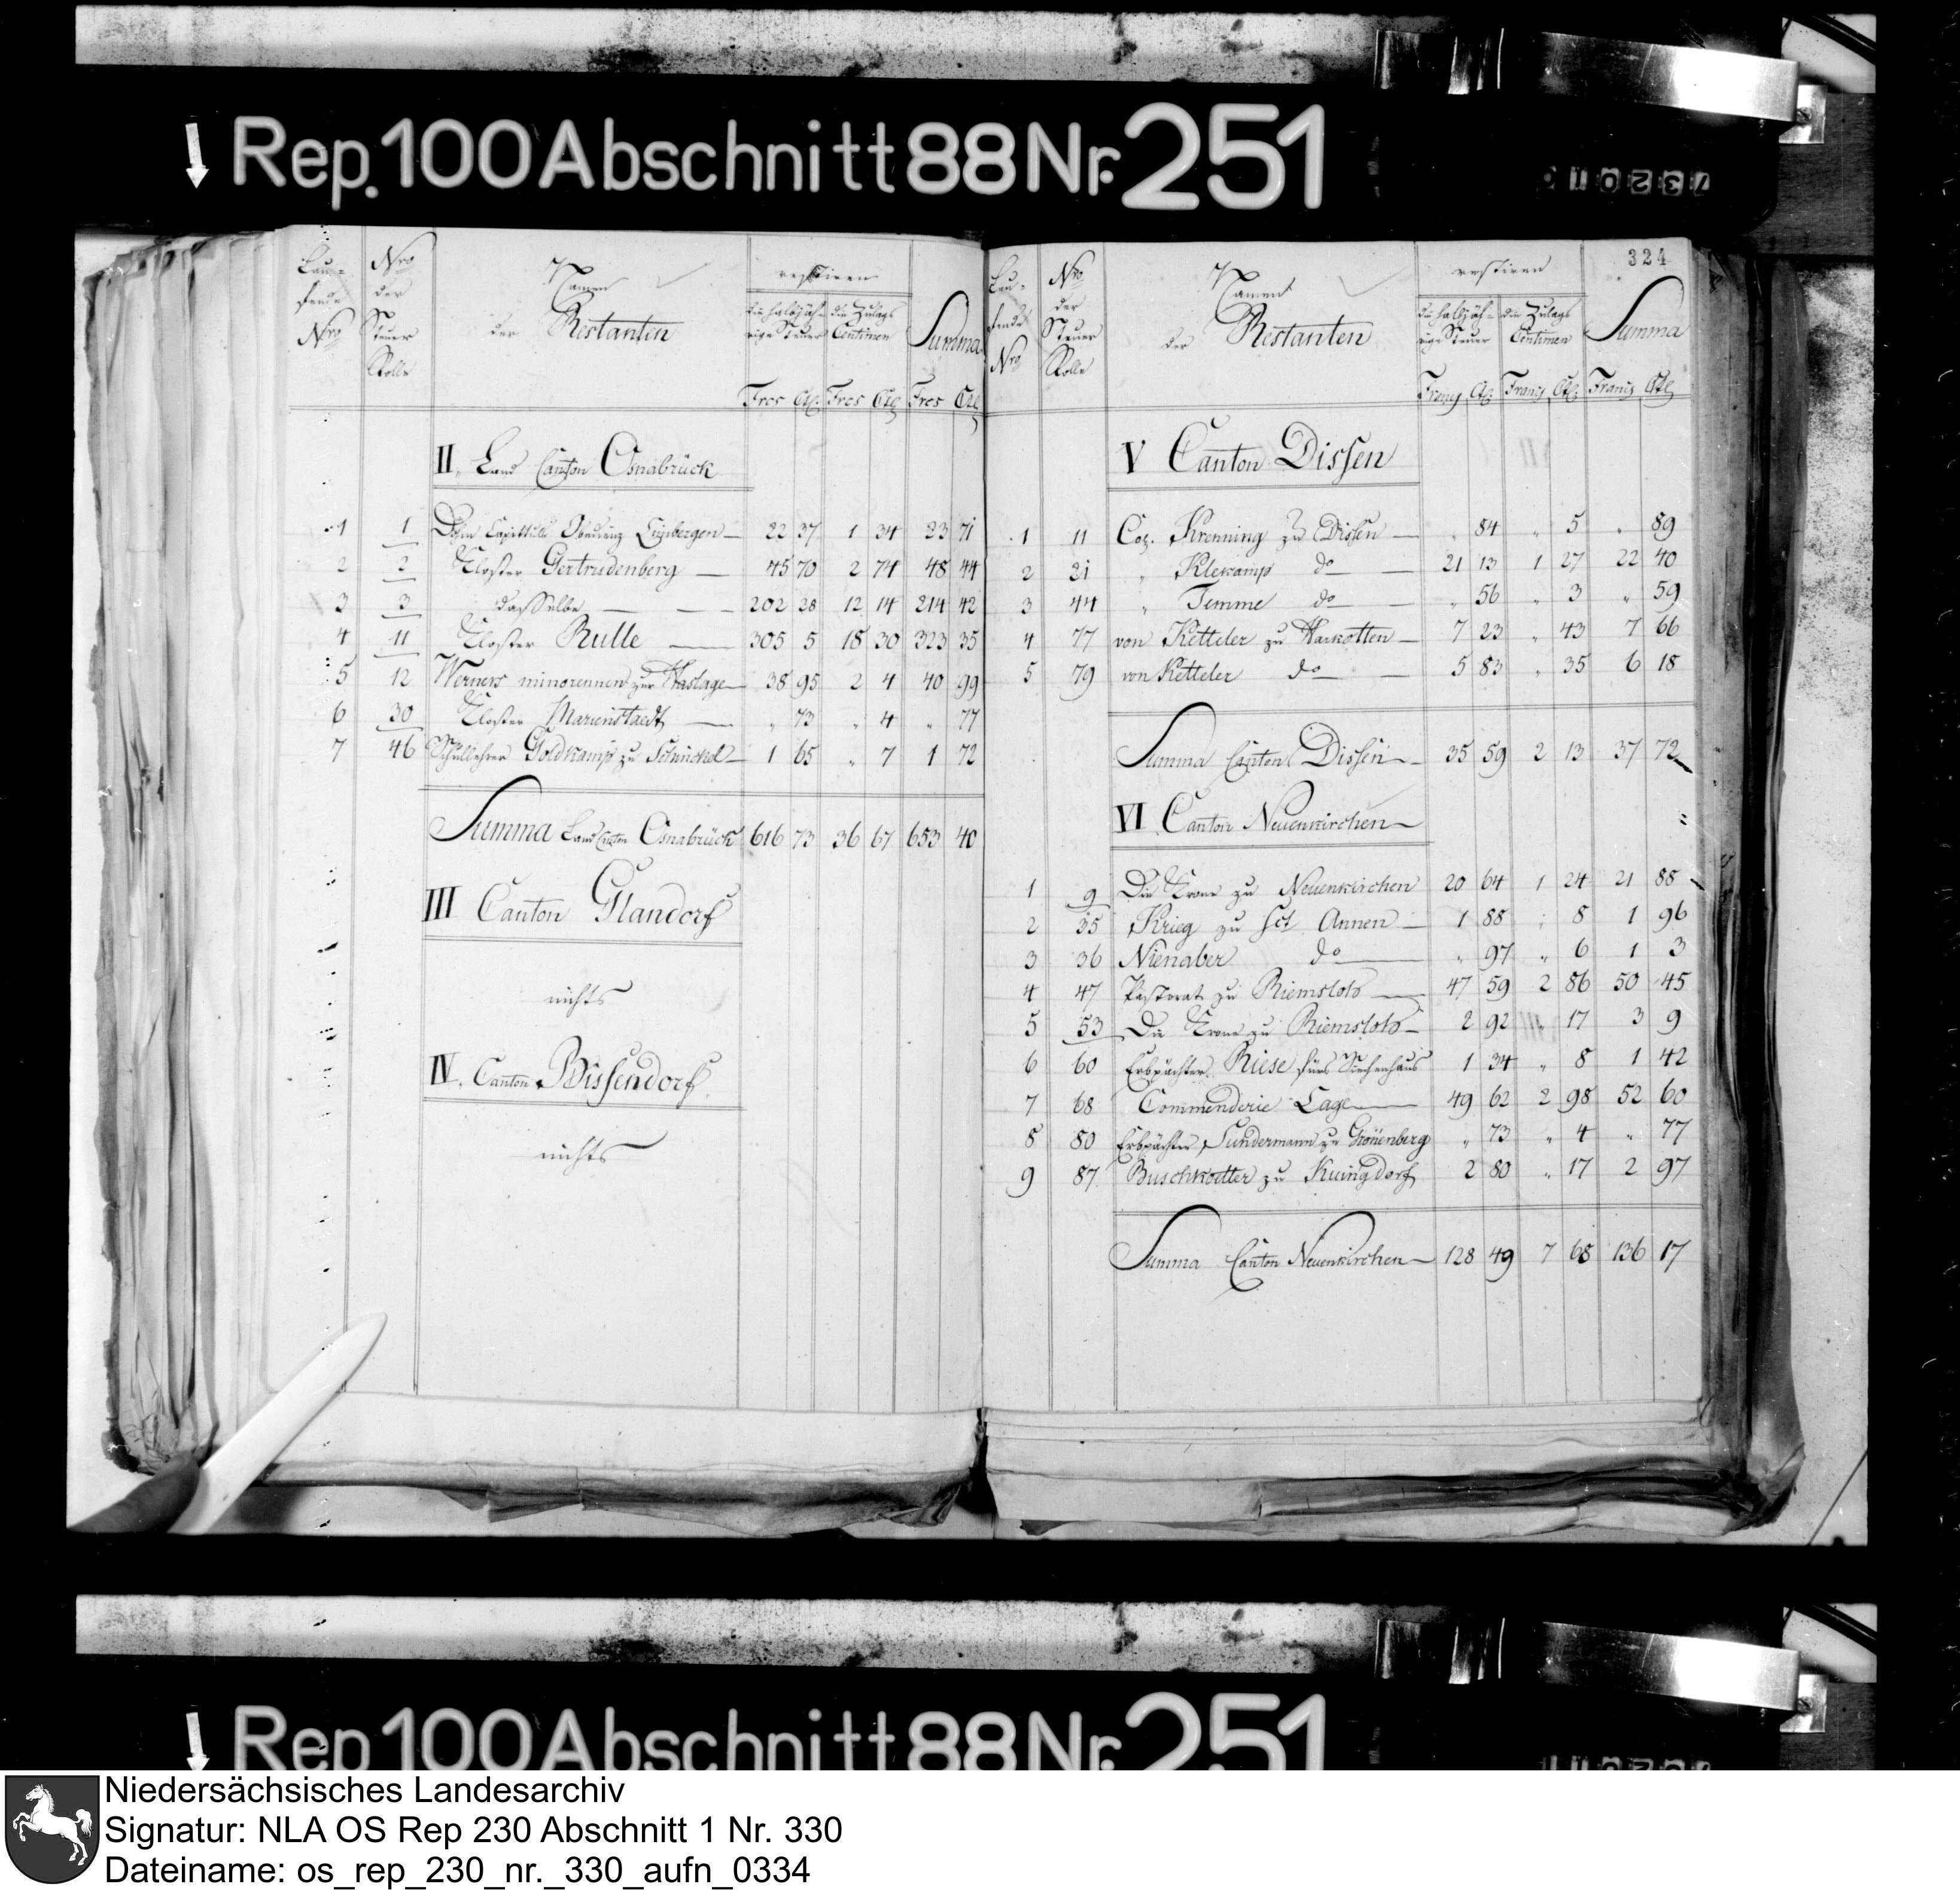 Rep. 100 Abschnitt 88 Nr. 251
Lau=
fende
Nro
Nro
der
Steuer
Rolle
Namen
der Restanten
restiren
die halbjäh=
rige Steuer
die Zulags
Centimen
Summa
Frcs Cts Frcs Cts Frcs Cts
II. Land Canton Osnabrück
1 1 Dohm Capittuls Obedienz 22 37 1 34 23 71
2 2 Kloster Gertrudenberg — 45 70 2 74 48 44
3 3 dasselbe — — 202 28 12 14 214 42
4 11 Kloster Rulle — 305 5 18 30 323 35
5 12 Werners minorennen zur Haslage — 38 95 2 4 40 99
6 30 Kloster Marienstaedt — „ 73 „ 4 „ 77
7 46 Schullehrer Goldkamp zu Schinckel — 1 65 „ 7 1 72
Summa Land Canton Osnabrück 616 73 36 67 653 40
III Canton Glandorf
nichts
IV. Canton Bissendorf
nichts
324
Lau=
fende
Nro
Nro
der
Steuer
Rolle
Namen
der Restanten
restiren
die halbjäh=
rige Steuer
die Zulags
Centimen
Summa
Francs Cts Francs Cts Francs Cts
V Canton Dissen
1 11 Col. Krenning zu Dissen — „ 84 „ 5 „ 89
2 21 „ Klekamp do — 21 13 1 27 22 40
3 44 „ Temme do — „ 56 „ 3 „ 59
4 77 von Ketteler zu Harkotten — 7 23 „ 43 7 66
5 79 von Ketteler do — 5 83 „ 35 6 18
Summa Canton Dissen — 35 59 2 13 37 72
VI Canton Neuenkirchen —
1 9 Die Krone zu Neuenkirchen 20 64 1 24 21 88
2 35 Krieg zu Sct. Annen — 1 88 „ 8 1 96
3 36 Nienaber do — „ 97 „ 6 1 3
4 47 Pastorat zu Riemsloh — 47 59 2 86 50 45
5 53 Die Krone zu Riemsloh — 2 92 „ 17 3 9
6 60 Erbpächter Riese fürs Siechenhaus 1 34 „ 8 1 42
7 68 Commenderie Lage — 49 62 2 98 52 60
8 80 Erbpächter Sundermann zu Grönenberg „ 73 „ 4 „ 77
9 87 Buschkötter zu Kuingdorf 2 80 „ 17 2 97
Summa Canton Neuenkirchen — 128 49 7 68 136 17
Rep 100 Abschnitt 88 Nr. 251
Niedersächsisches Landesarchiv
Signatur: NLA OS Rep 230 Abschnitt 1 Nr. 330
Dateiname: os_rep_230_nr._330_aufn_0334